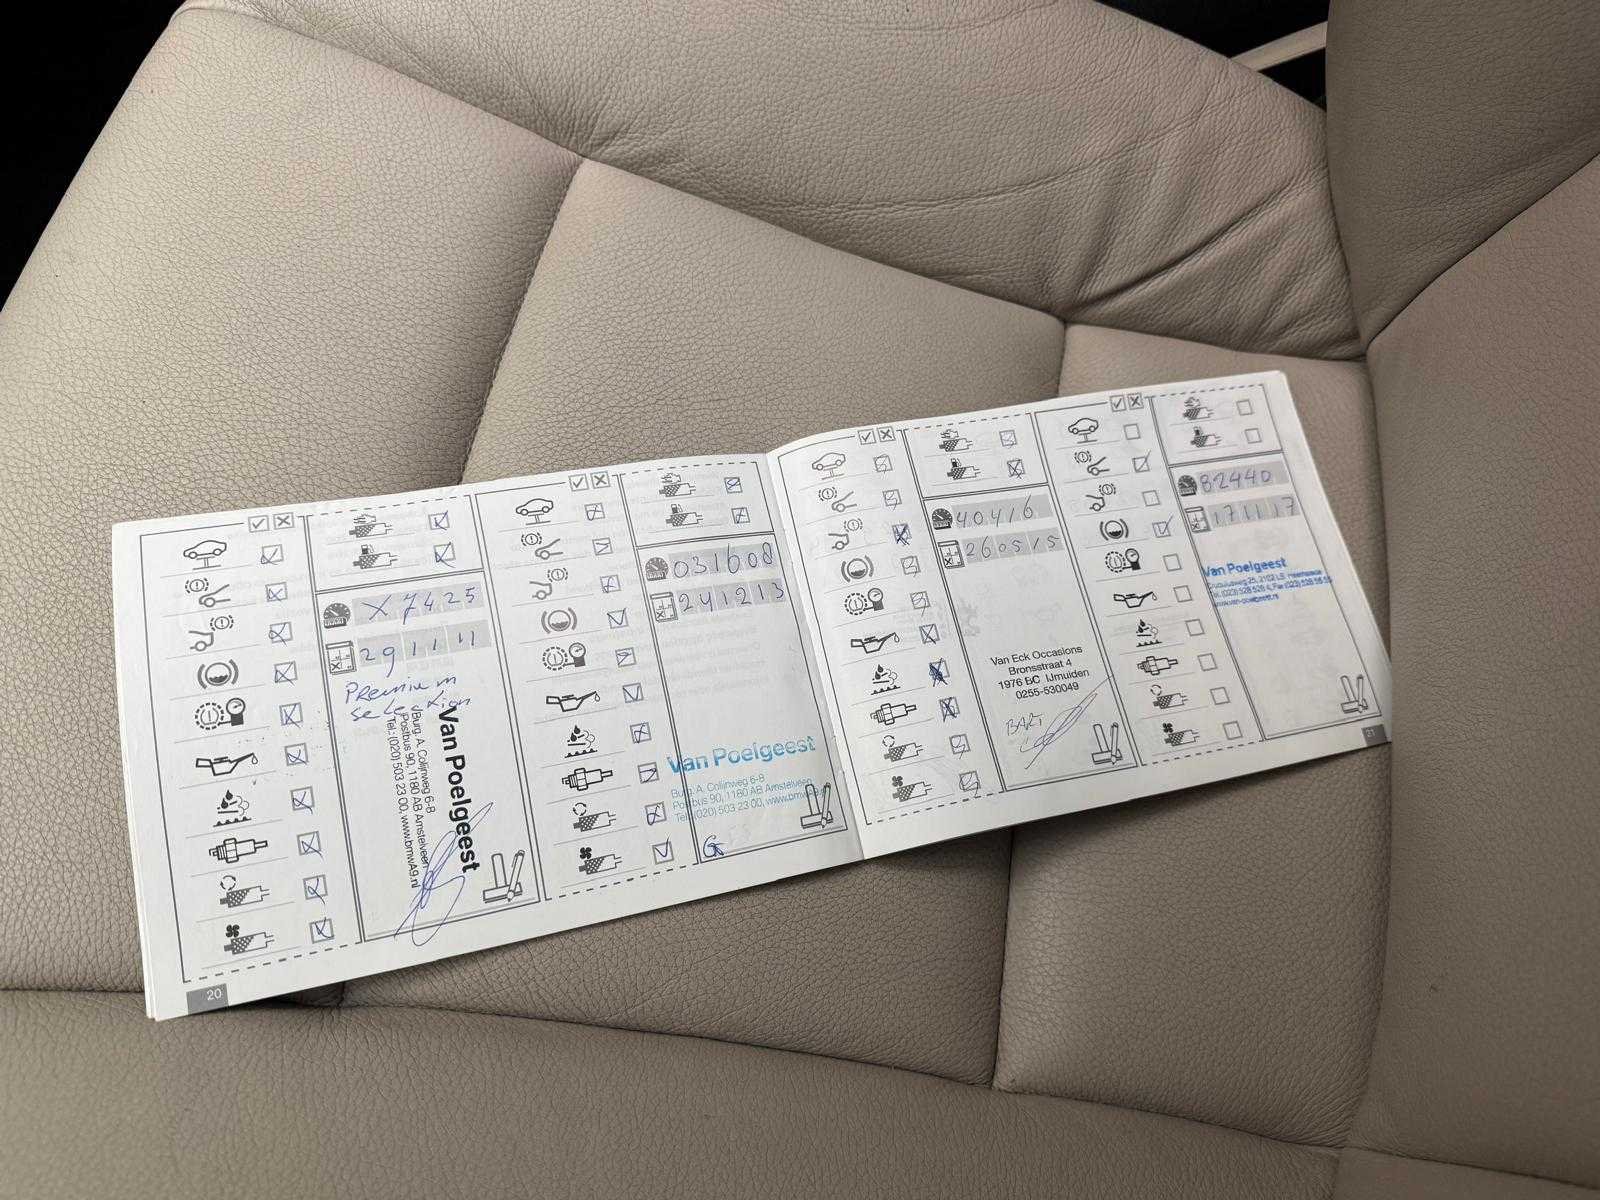 X7425
291111
Premium
selection
Van Poelgeest
Burg. A. Colijnweg 6-8
Postbus 90, 1180 AB Amstelveen
Tel.: (020) 503 23 00, www.bmwA9.nl
20
031608
241213
Van Poelgeest
Burg. A. Colijnweg 6-8
Postbus 90, 1180 AB Amstelveen
Tel. (020) 503 23 00, www.bmwa9.nl
G
40416
260515
Van Eck Occasions
Bronsstraat 4
1976 BC IJmuiden
0255-530049
BART
82440
171117
Van Poelgeest
Cruquiusweg 25, 2102 LS Heemstede
www.van-poelgeest.nl
21